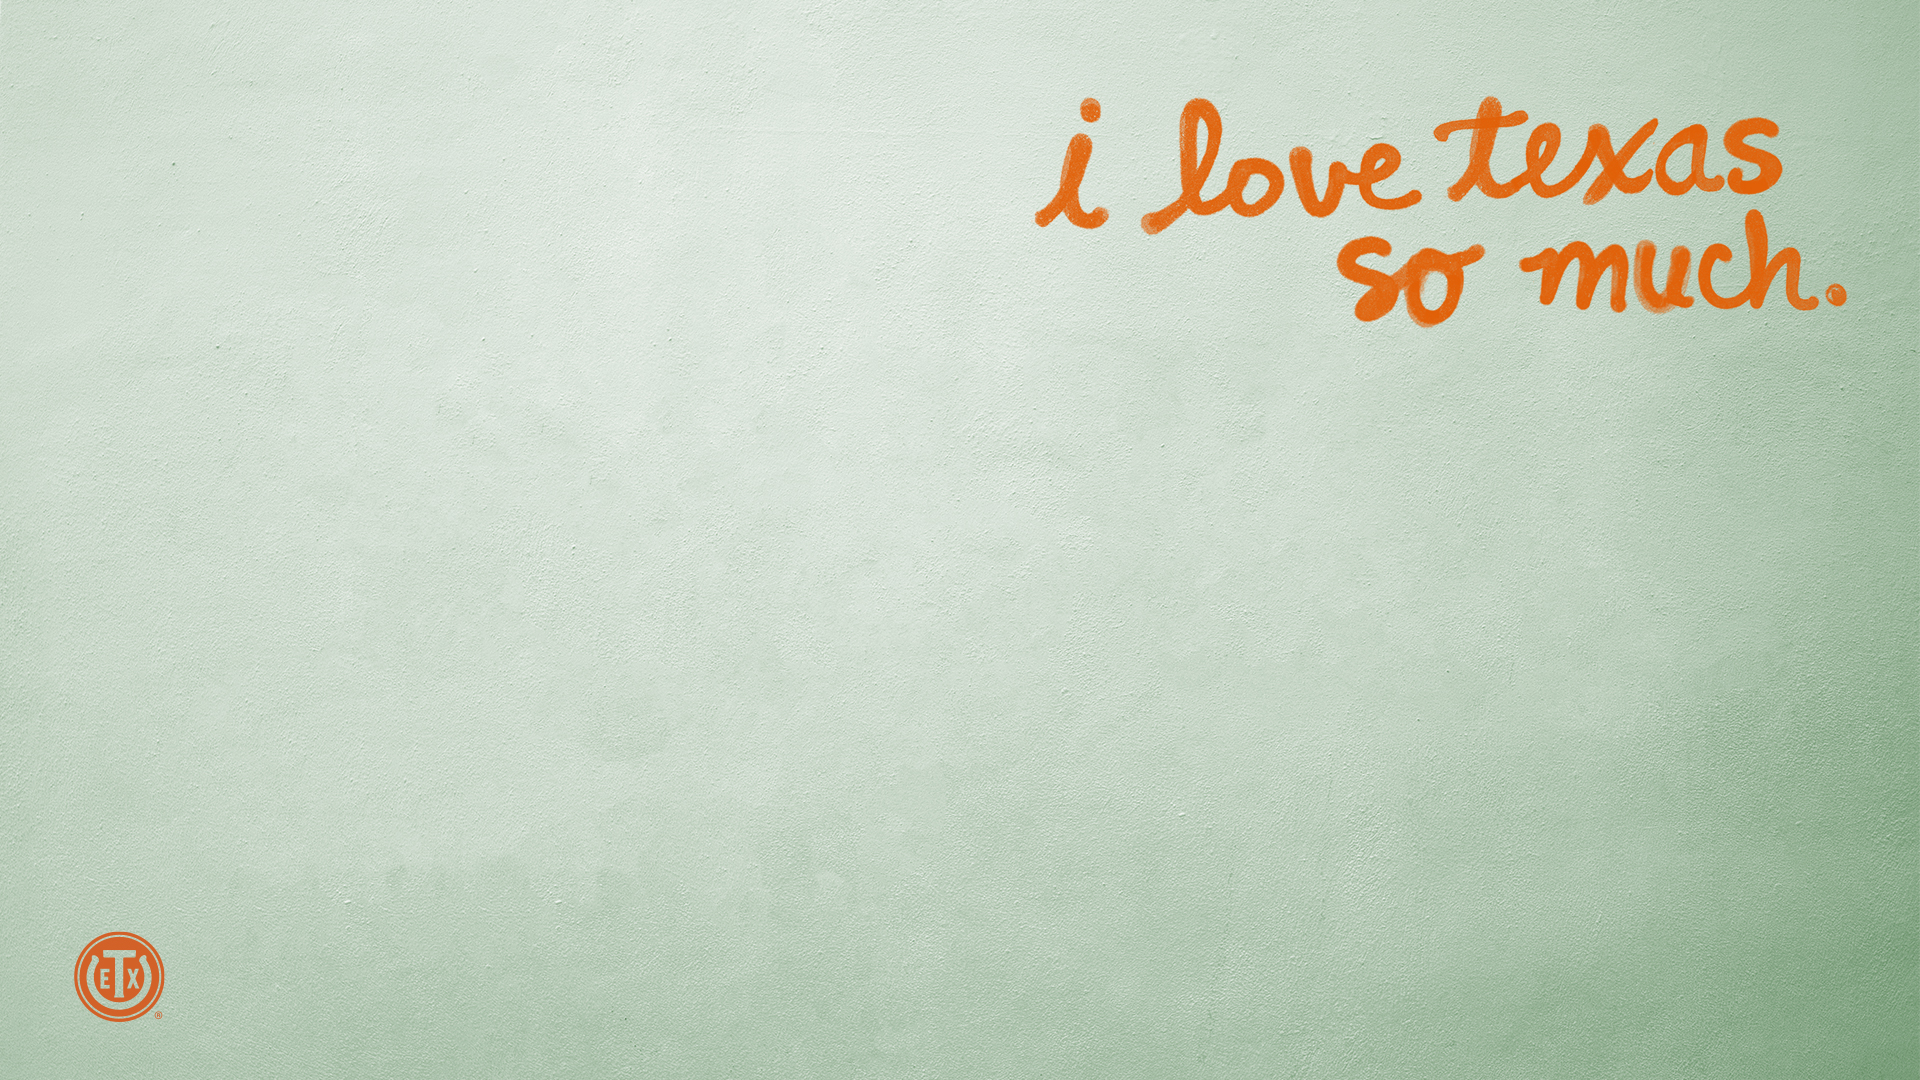 i love texas
so much.
T
E X
®